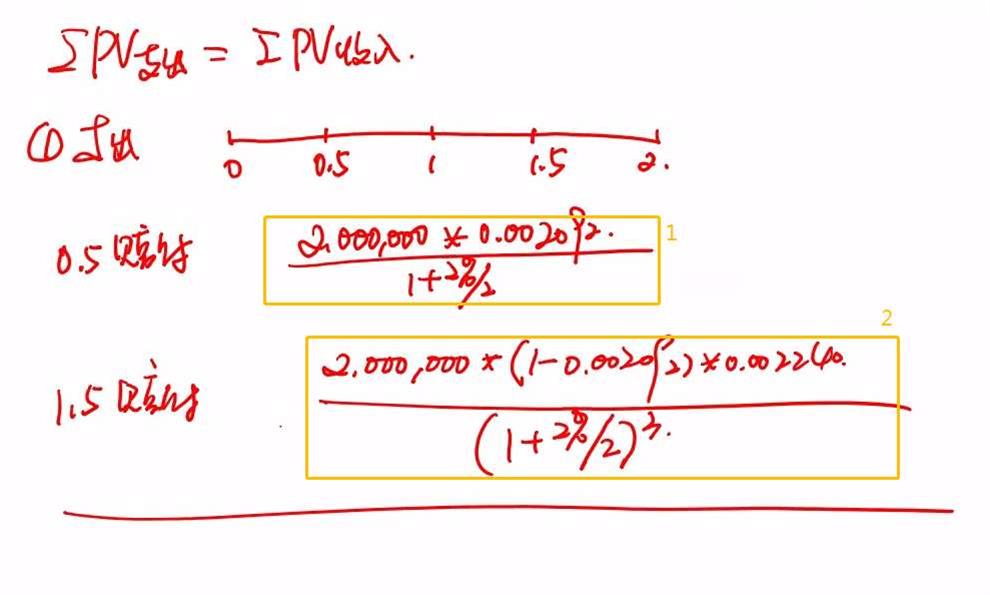 ΣPV支出 = ΣPV收入.
① 支出
0 0.5 1 1.5 2.
0.5 赔付 2.000,000 * 0.002092. / 1+2%/2 1
2
1.5 赔付 2.000,000 * (1-0.002092) * 0.002240. / (1+2%/2)^3.